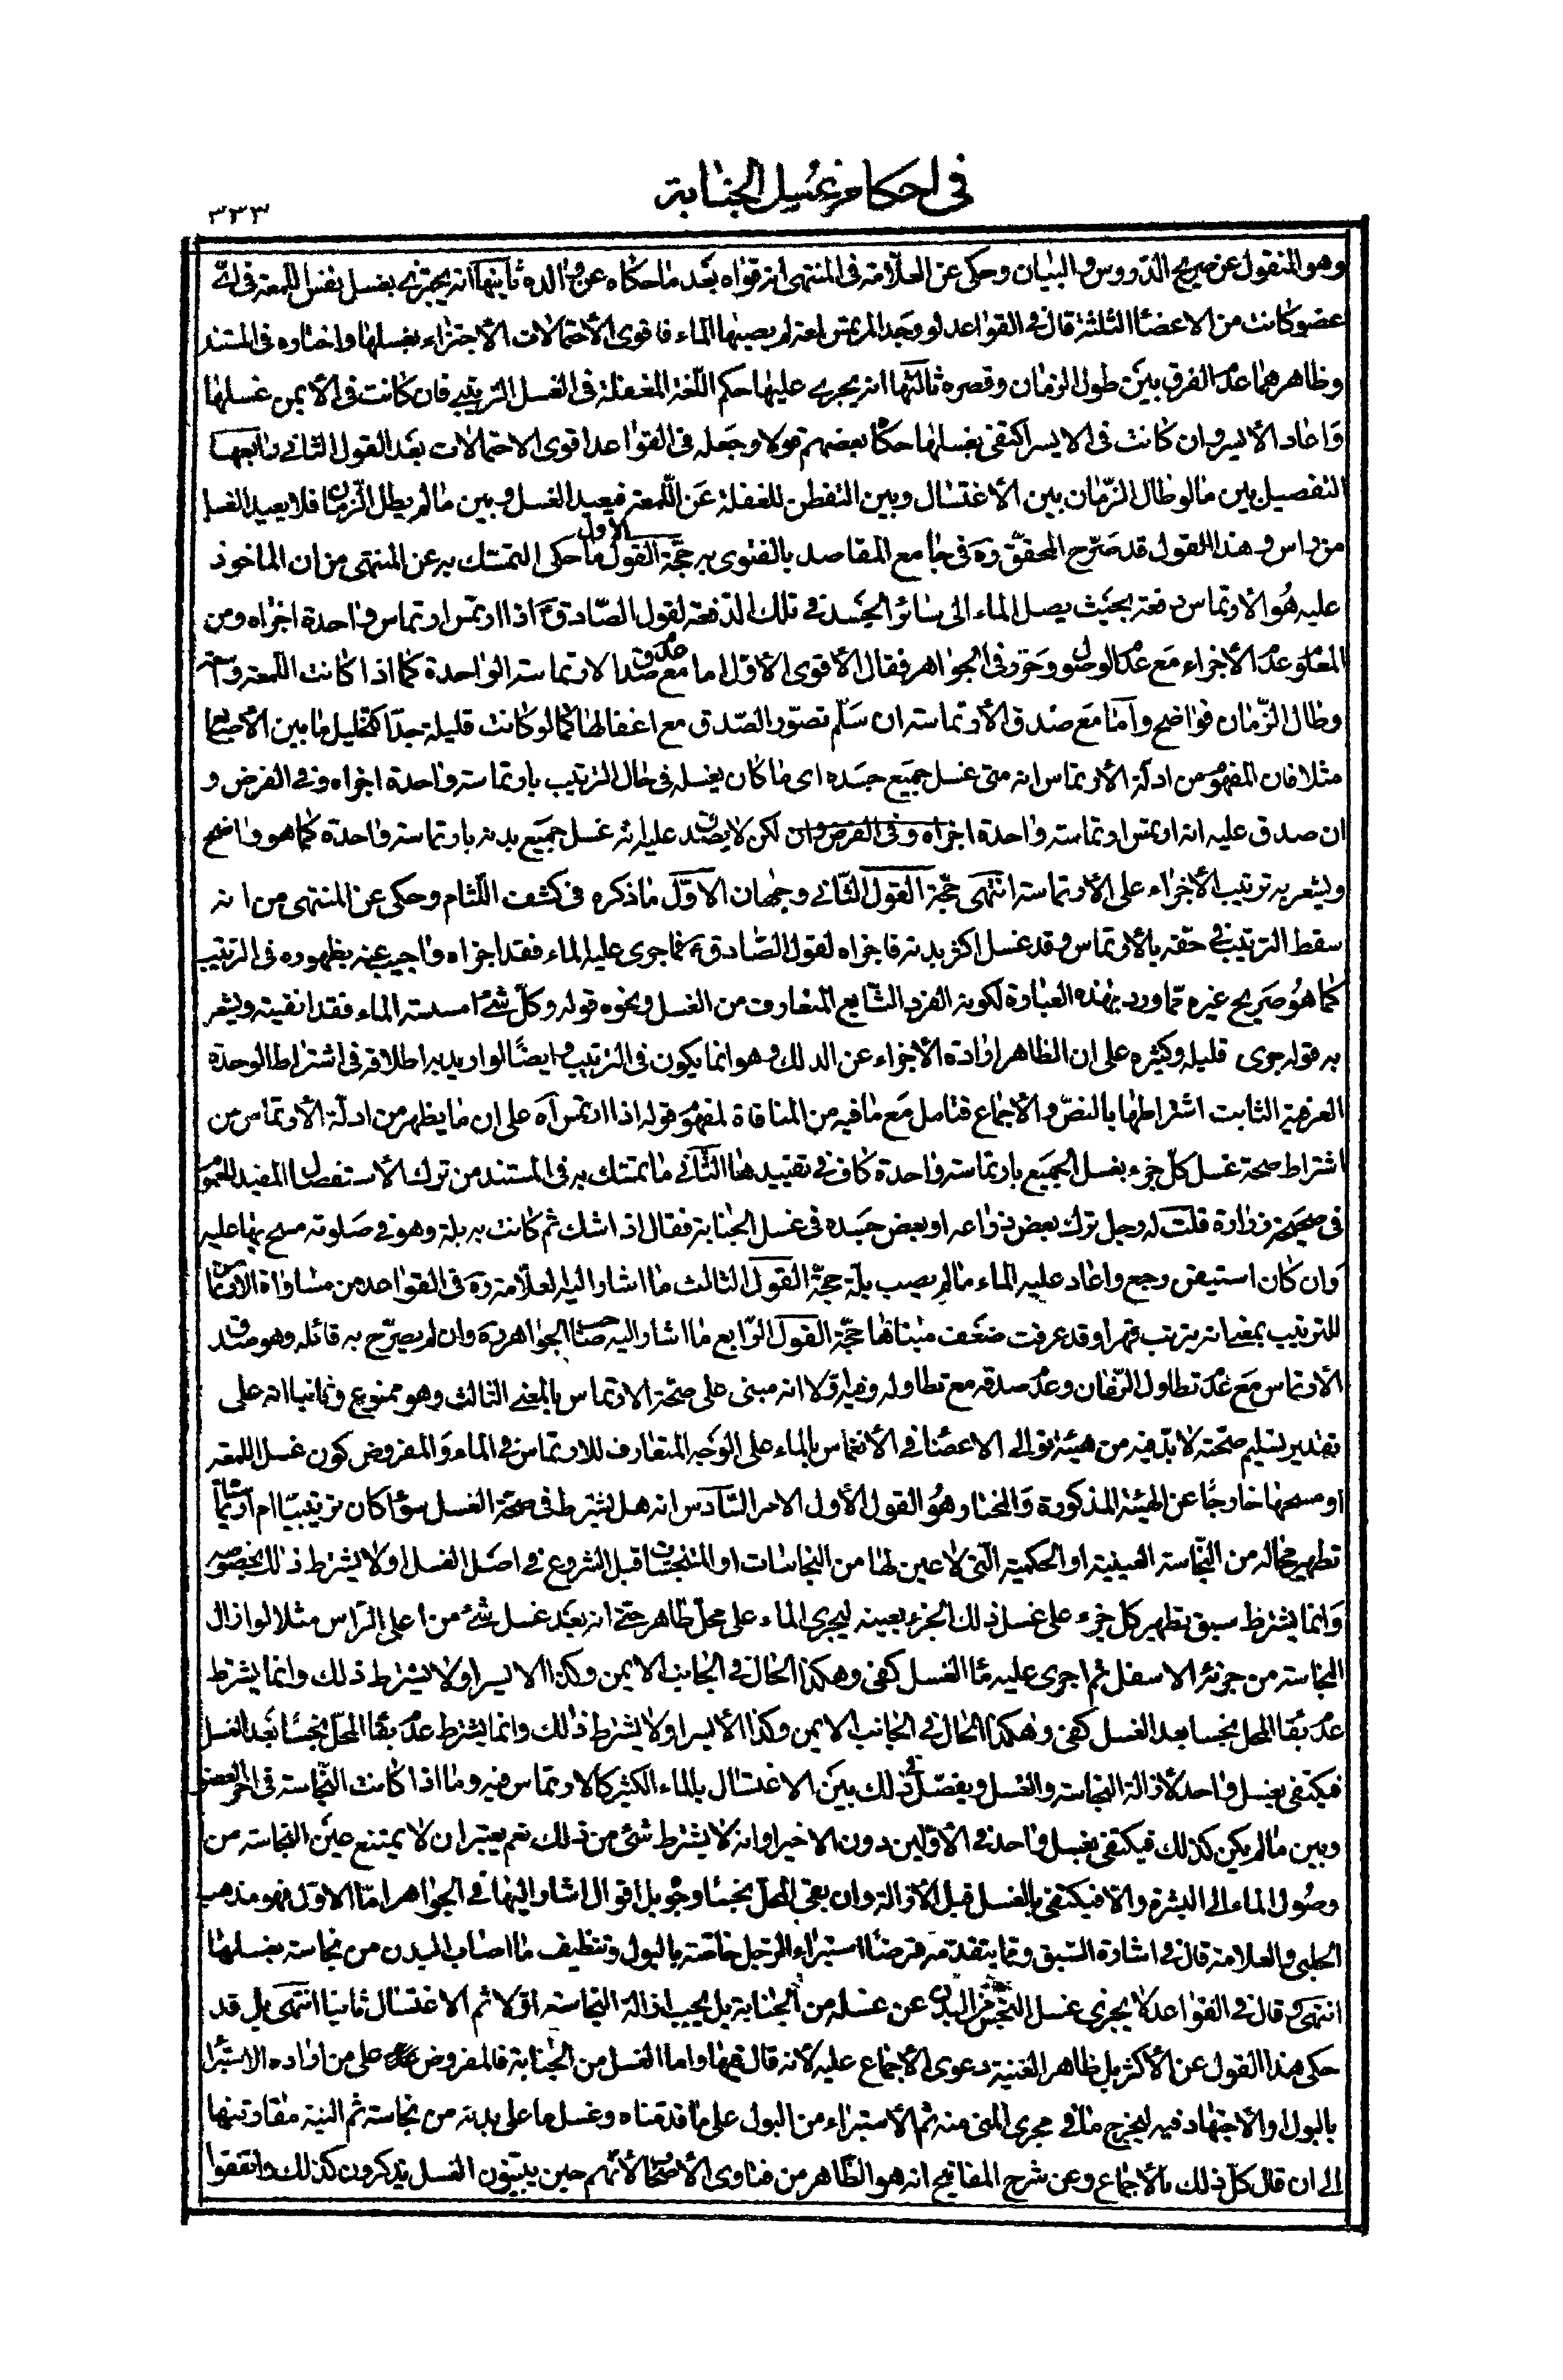 في احكام غسل الجنابة
٣٣٣
وهو المنقول عن صريح الدروس والبيان وحكى عن العلامة في المنتهى انه قواه بعد ما حكاه عن والده ثانيها انه يجتزي بغسل نفس اللمعة في اي
عضو كانت من الاعضاء الثلثة قال في القواعد لو وجد المرتمس لمعة لم يصبها الماء فاقوى الاحتمالات الاجتزاء بغسلها واختاره في المستند
وظاهرهما عدم الفرق بين طول الزمان وقصره ثالثها انه يجري عليها حكم اللمعة المغفلة في الغسل الترتيبي فان كانت في الأيمن غسلها
واعاد الأيسر وان كانت في الايسر اكتفى بغسلها حكاه بعضهم قولا وجعله في القواعد اقوى الاحتمالات بعد القول الثاني رابعها
التفصيل بين ما لو طال الزمان بين الاغتسال وبين التفطن للغفلة عن اللمعة فيعيد الغسل وبين ما لم يطل الزمان فلا يعيد الغسل
من راس وهذا القول قد صرح المحقق ره في جامع المقاصد بالفتوى به حجة القول الاول ما حكى التمسك به عن المنتهى من ان الماخوذ
عليه هو الارتماس دفعة بحيث يصل الماء الى سائر الجسد في تلك الدفعة لقول الصادق ع اذا ارتمس ارتماسة واحدة اجزاه ومن
المعلوم عدم الاجزاء مع عدم الوصول وحرر في الجواهر فقال الأقوى الأول اما مع عدم صدق الارتماسة الواحدة كما اذا كانت اللمعة واسعة
وطال الزمان فواضح وأما مع صدق الأرتماسة ان سلم تصور الصدق مع اغفالها كما لو كانت قليلة جدا كتخليل ما بين الأصابع
مثلا فان المفهوم من ادلة الأرتماس انه متى غسل جميع جسده اى ما كان يغسله في حال الترتيب بارتماسة واحدة اجزاه وفي الفرض و
ان صدق عليه انه ارتمس ارتماسة واحدة اجزاه وفي الفرض وان لكن لا يصدق عليه انه غسل جميع بدنه بارتماسة واحدة كما هو واضح
ويشعر به ترتيب الأجزاء على الأرتماسة انتهى حجة القول الثاني وجهان الأول ما ذكره في كشف اللثام وحكى عن المنتهى من انه
سقط الترتيب في حقه بالأرتماس وقد غسل اكثر بدنه فاجزاه لقول الصادق ع فما جرى عليه الماء فقد اجزاه واجيب عنه بظهوره في الترتيب
كما هو صريح غيره مما ورد بهذه العبارة لكونه الفرد الشايع المتعارف من الغسل ونحوه قوله وكل شئ امسسته الماء فقد انقيته ويشعر
به قوله جرى قليله وكثيره على ان الظاهر ارادة الاجزاء عن الدلك وهو انما يكون في الترتيب وايضا لو اريد به اطلاقه في اشتراط الوحدة
العرفية الثابت اشتراطها بالنص والأجماع فتامل مع ما فيه من المنافاة لمفهوم قوله اذا ارتمس آه على ان ما يظهر من ادلة الأرتماس من
اشتراط صحة غسل كل جزء بغسل الجميع بارتماسة واحدة كاف في تقييدها الثاني ما تمسك به في المستند من ترك الأستفصال المفيد للعموم
في صحيحة زرارة قلت له رجل ترك بعض ذراعه او بعض جسده في غسل الجنابة فقال اذا شك ثم كانت به بلة وهو في صلوته مسح بها عليه
وان كان استيقن رجع واعاد عليه الماء ما لم يصب بلة حجة القول الثالث ما اشار اليه العلامة ره في القواعد من مساواة الارتماس
للترتيب بمعنى انه يترتب قهرا وقد عرفت ضعف مبناها حجة القول الرابع ما اشار اليه صاحب الجواهر ره وان لم يصرح به قائله وهو صدق
الأرتماس مع عدم تطاول الزمان وعدم صدقه مع تطاوله وفيه اولا انه مبنى على صحة الارتماس بالمعنى الثالث وهو ممنوع وثانيا انه على
تقدير تسليم صحته لا بد فيه من هيئة توالى الاعضاء في الأنغماس بالماء على الوجه المتعارف للارتماس في الماء والمفروض كون غسل اللمعة
او مسحها خارجا عن الهيئة المذكورة والمختار هو القول الأول الامر السادس انه هل يشترط في صحة الغسل سواء كان ترتيبيا ام ارتماسيا
تطهير محاله من النجاسة العينية او الحكمية التي لا عين لها من النجاسات او المتنجسات قبل الشروع في اصل الغسل او لا يشترط ذلك بخصوصه
وانما يشترط سبق تطهير كل جزء على غسل ذلك الجزء بعينه ليجرى الماء على محل طاهر حتى انه بعد غسل شئ من اعلى الراس مثلا لو ازال
النجاسة من جزئه الاسفل ثم اجرى عليه ماء الغسل كفى وهكذا الحال في الجانب الايمن وكذا الايسر او لا يشترط ذلك وانما يشترط
عدم بقاء المحل نجسا بعد الغسل كفى وهكذا الحال في الجانب الايمن وكذا الأيسر او لا يشترط ذلك وانما يشترط عدم بقاء المحل نجسا بعد الغسل
فيكتفى بغسل واحد لأزالة النجاسة والغسل ويفصل في ذلك بين الاغتسال بالماء الكثير كالارتماس فيه وما اذا كانت النجاسة في اخر العضو
وبين ما لم يكن كذلك فيكتفى بغسل واحد في الأولين دون الاخير او انه لا يشترط شئ من ذلك نعم يعتبر ان لا يمتنع عين النجاسة من
وصول الماء الى البشرة والا فيكتفى بالغسل قبل الأزالة وان بقى المحل نجسا وجوه بل اقوال اشار اليها في الجواهر اما الاول فهو مذهب
الحلبي والعلامة قال في اشارة السبق ومما يتقدمه فرضا استبراء الرجل خاصة بالبول وتنظيف ما اصاب البدن من نجاسة بغسلها
انتهى وقال في القواعد لا يجزى غسل النجس من البدن عن غسله من الجنابة بل يجب ازالة النجاسة اولا ثم الاغتسال ثانيا انتهى بل قد
حكى هذا القول عن الأكثر بل ظاهر الغنية دعوى الأجماع عليه لأنه قال فيها واما الغسل من الجنابة فالمفروض على من اراده الاستبراء
بالبول او الأجتهاد فيه ليخرج ما في مجرى المنى منه ثم الأستبراء من البول على ما قدمناه وغسل ما على بدنه من نجاسة ثم النية مقارنتها
الى ان قال كل ذلك بالأجماع وعن شرح المفاتيح انه هو الظاهر من فتاوى الأصحاب لأنهم حين يبينون الغسل يذكرون كذلك واتفقوا